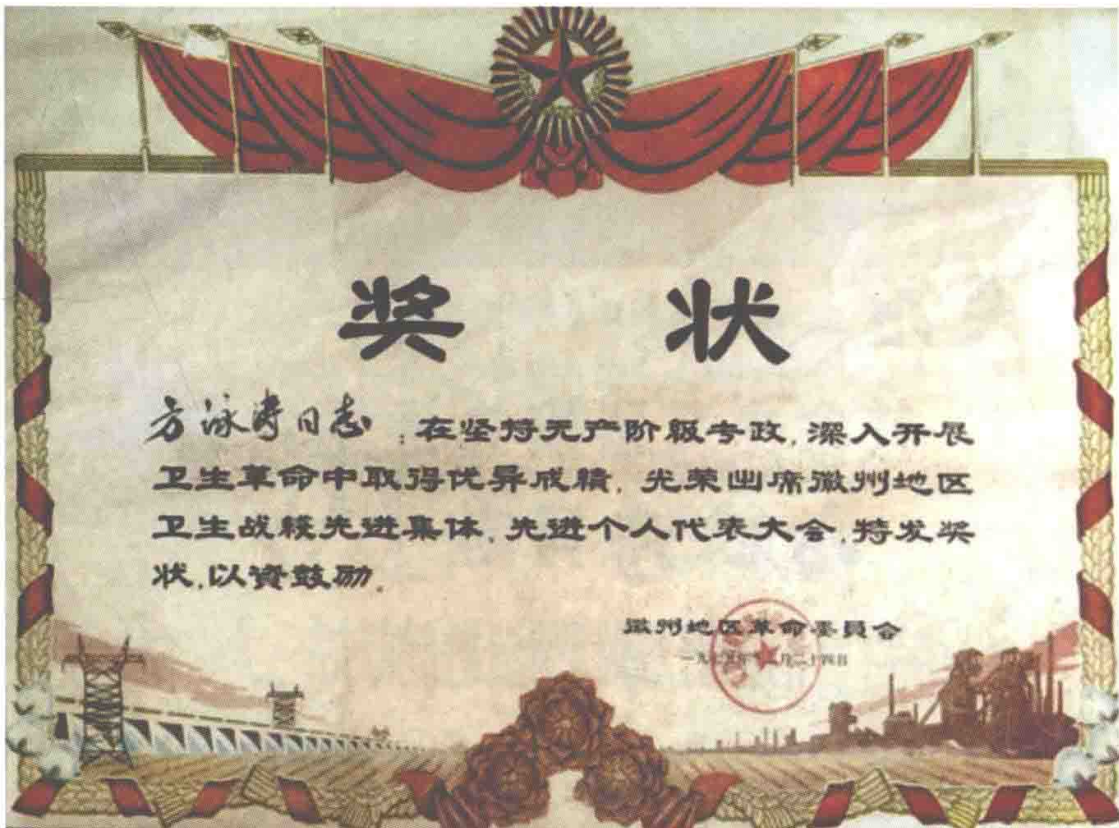 奖 状
方泳涛同志:在坚持无产阶级专政,深入开展
卫生革命中取得优异成绩,光荣出席徽州地区
卫生战线先进集体、先进个人代表大会,特发奖
状,以资鼓励。
徽州地区革命委员会
月二十四日